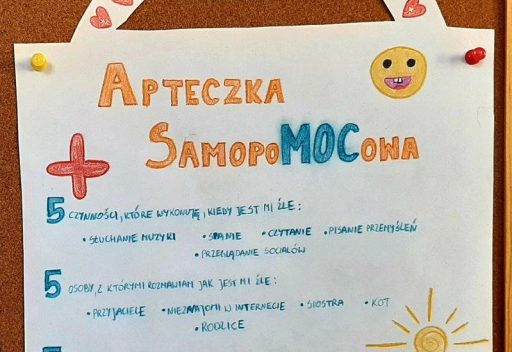 APTECZKA
SAMOPOMOCOWA
5 CZYNNOŚCI, KTÓRE WYKONUJĘ, KIEDY JEST MI ŹLE:
• SŁUCHANIE MUZYKI • SPANIE • CZYTANIE • PISANIE PRZEMYŚLEŃ
• PRZEGLĄDANIE SOCIALÓW
5 OSOBY, Z KTÓRYMI ROZMAWIAM JAK JEST MI ŹLE:
• PRZYJACIELE • NIEZNAJOMI W INTERNECIE • SIOSTRA • KOT
• RODZICE